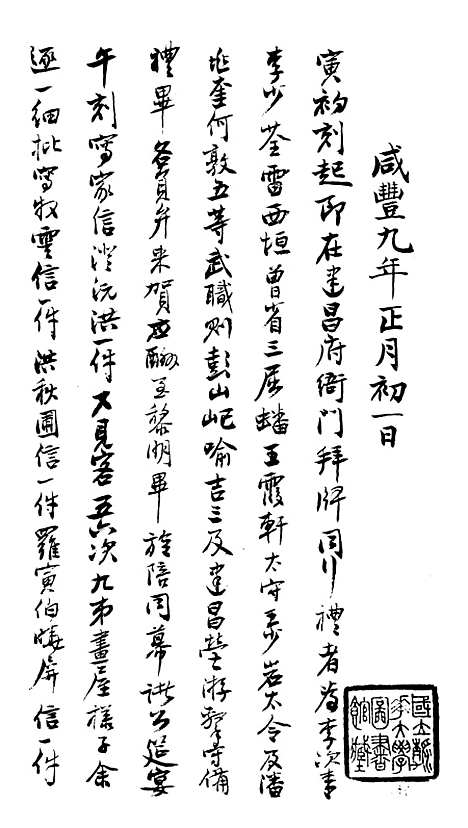 咸豐九年正月初一日
寅初刻起即在建昌府衙門拜牌同行禮者為李次青
李少荃雷西垣曾省三屈蟠王霞軒太守秦少岩太令及潘
兆奎何敦五等武職則彭山屺喻吉三及建昌營游擊守備
禮畢各員弁來賀應酬至黎明畢旋陪同幕諸公筵宴
午刻寫家信澄沅洪一件又見客五六次九弟畫屋樣子余
逐一細批寫牧雲信一件洪秋圃信一件羅寅伯曉屏信一件
國立清華大學圖書館藏